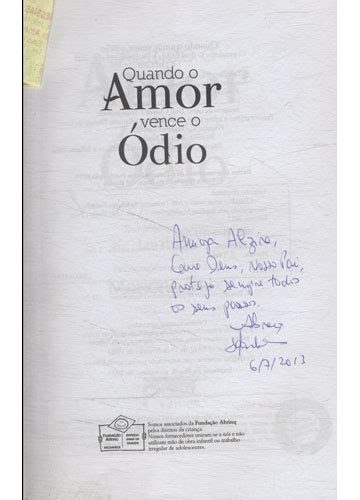 Quando o
Amor
vence o
Ódio
Amiga Alzira,
Que Deus, nosso Pai,
proteja sempre todos
os seus passos.
Abraço
6/7/2013
FUNDAÇÃO ABRINQ
EMPRESA AMIGA DA CRIANÇA
Somos associados da Fundação Abrinq
pelos direitos da criança.
Nossos fornecedores uniram-se a nós e não
utilizam mão de obra infantil ou trabalho
irregular de adolescentes.